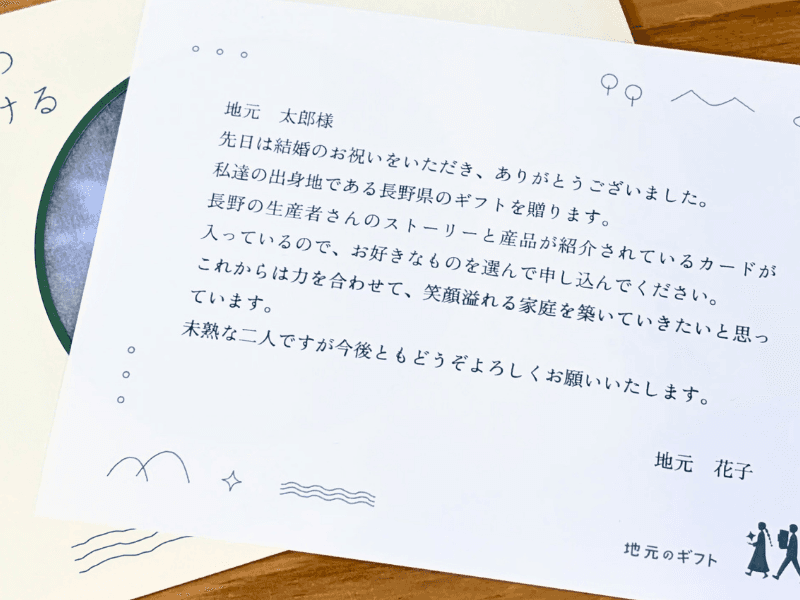 つ
ける
地元　太郎様
先日は結婚のお祝いをいただき、ありがとうございました。
私達の出身地である長野県のギフトを贈ります。
長野の生産者さんのストーリーと産品が紹介されているカードが
入っているので、お好きなものを選んで申し込んでください。
これからは力を合わせて、笑顔溢れる家庭を築いていきたいと思っ
ています。
未熟な二人ですが今後ともどうぞよろしくお願いいたします。
地元　花子
地元のギフト